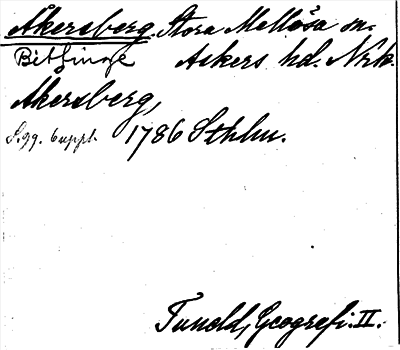 Åkersberg. Stora Mellösa sn.
Bitfinge Askers hd. Nrk.
Åkersberg,
S. 99. 6 uppl. 1786 Sthlm.
Tuneld, Geografi. II.